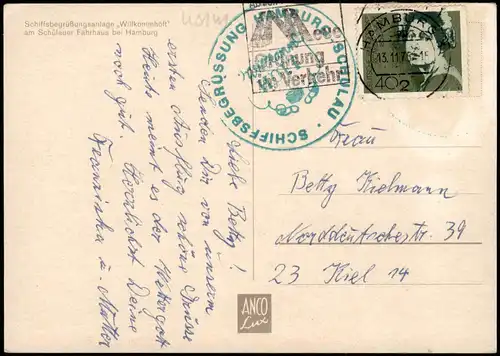 Schiffsbegrüßungsanlage „Willkommhöft"
am Schulauer Fährhaus bei Hamburg
Liebe Betty!
Senden Dir von unserm
ersten Ausflug schöne Grüsse
Heute meint es der Wettergott
noch gut. Herzlichst Deine
Franziska u. Mutter
SCHIFFSBEGRÜSSUNG HAMBURG-SCHULAU
Ordnung
im Verkehr
HAMBURG
13.11.7
2
40
Frau
Betty Kielmann
Norddeutschestr. 39
23 Kiel 14
ANCO
Lux